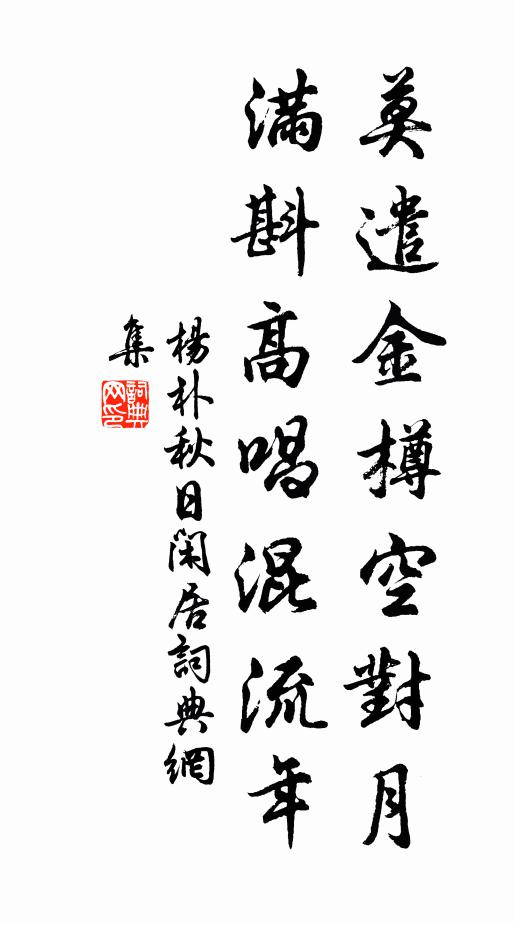 莫遣金樽空對月
滿斟高唱混流年
楊朴秋日閑居詞典網
集
詞典
网印